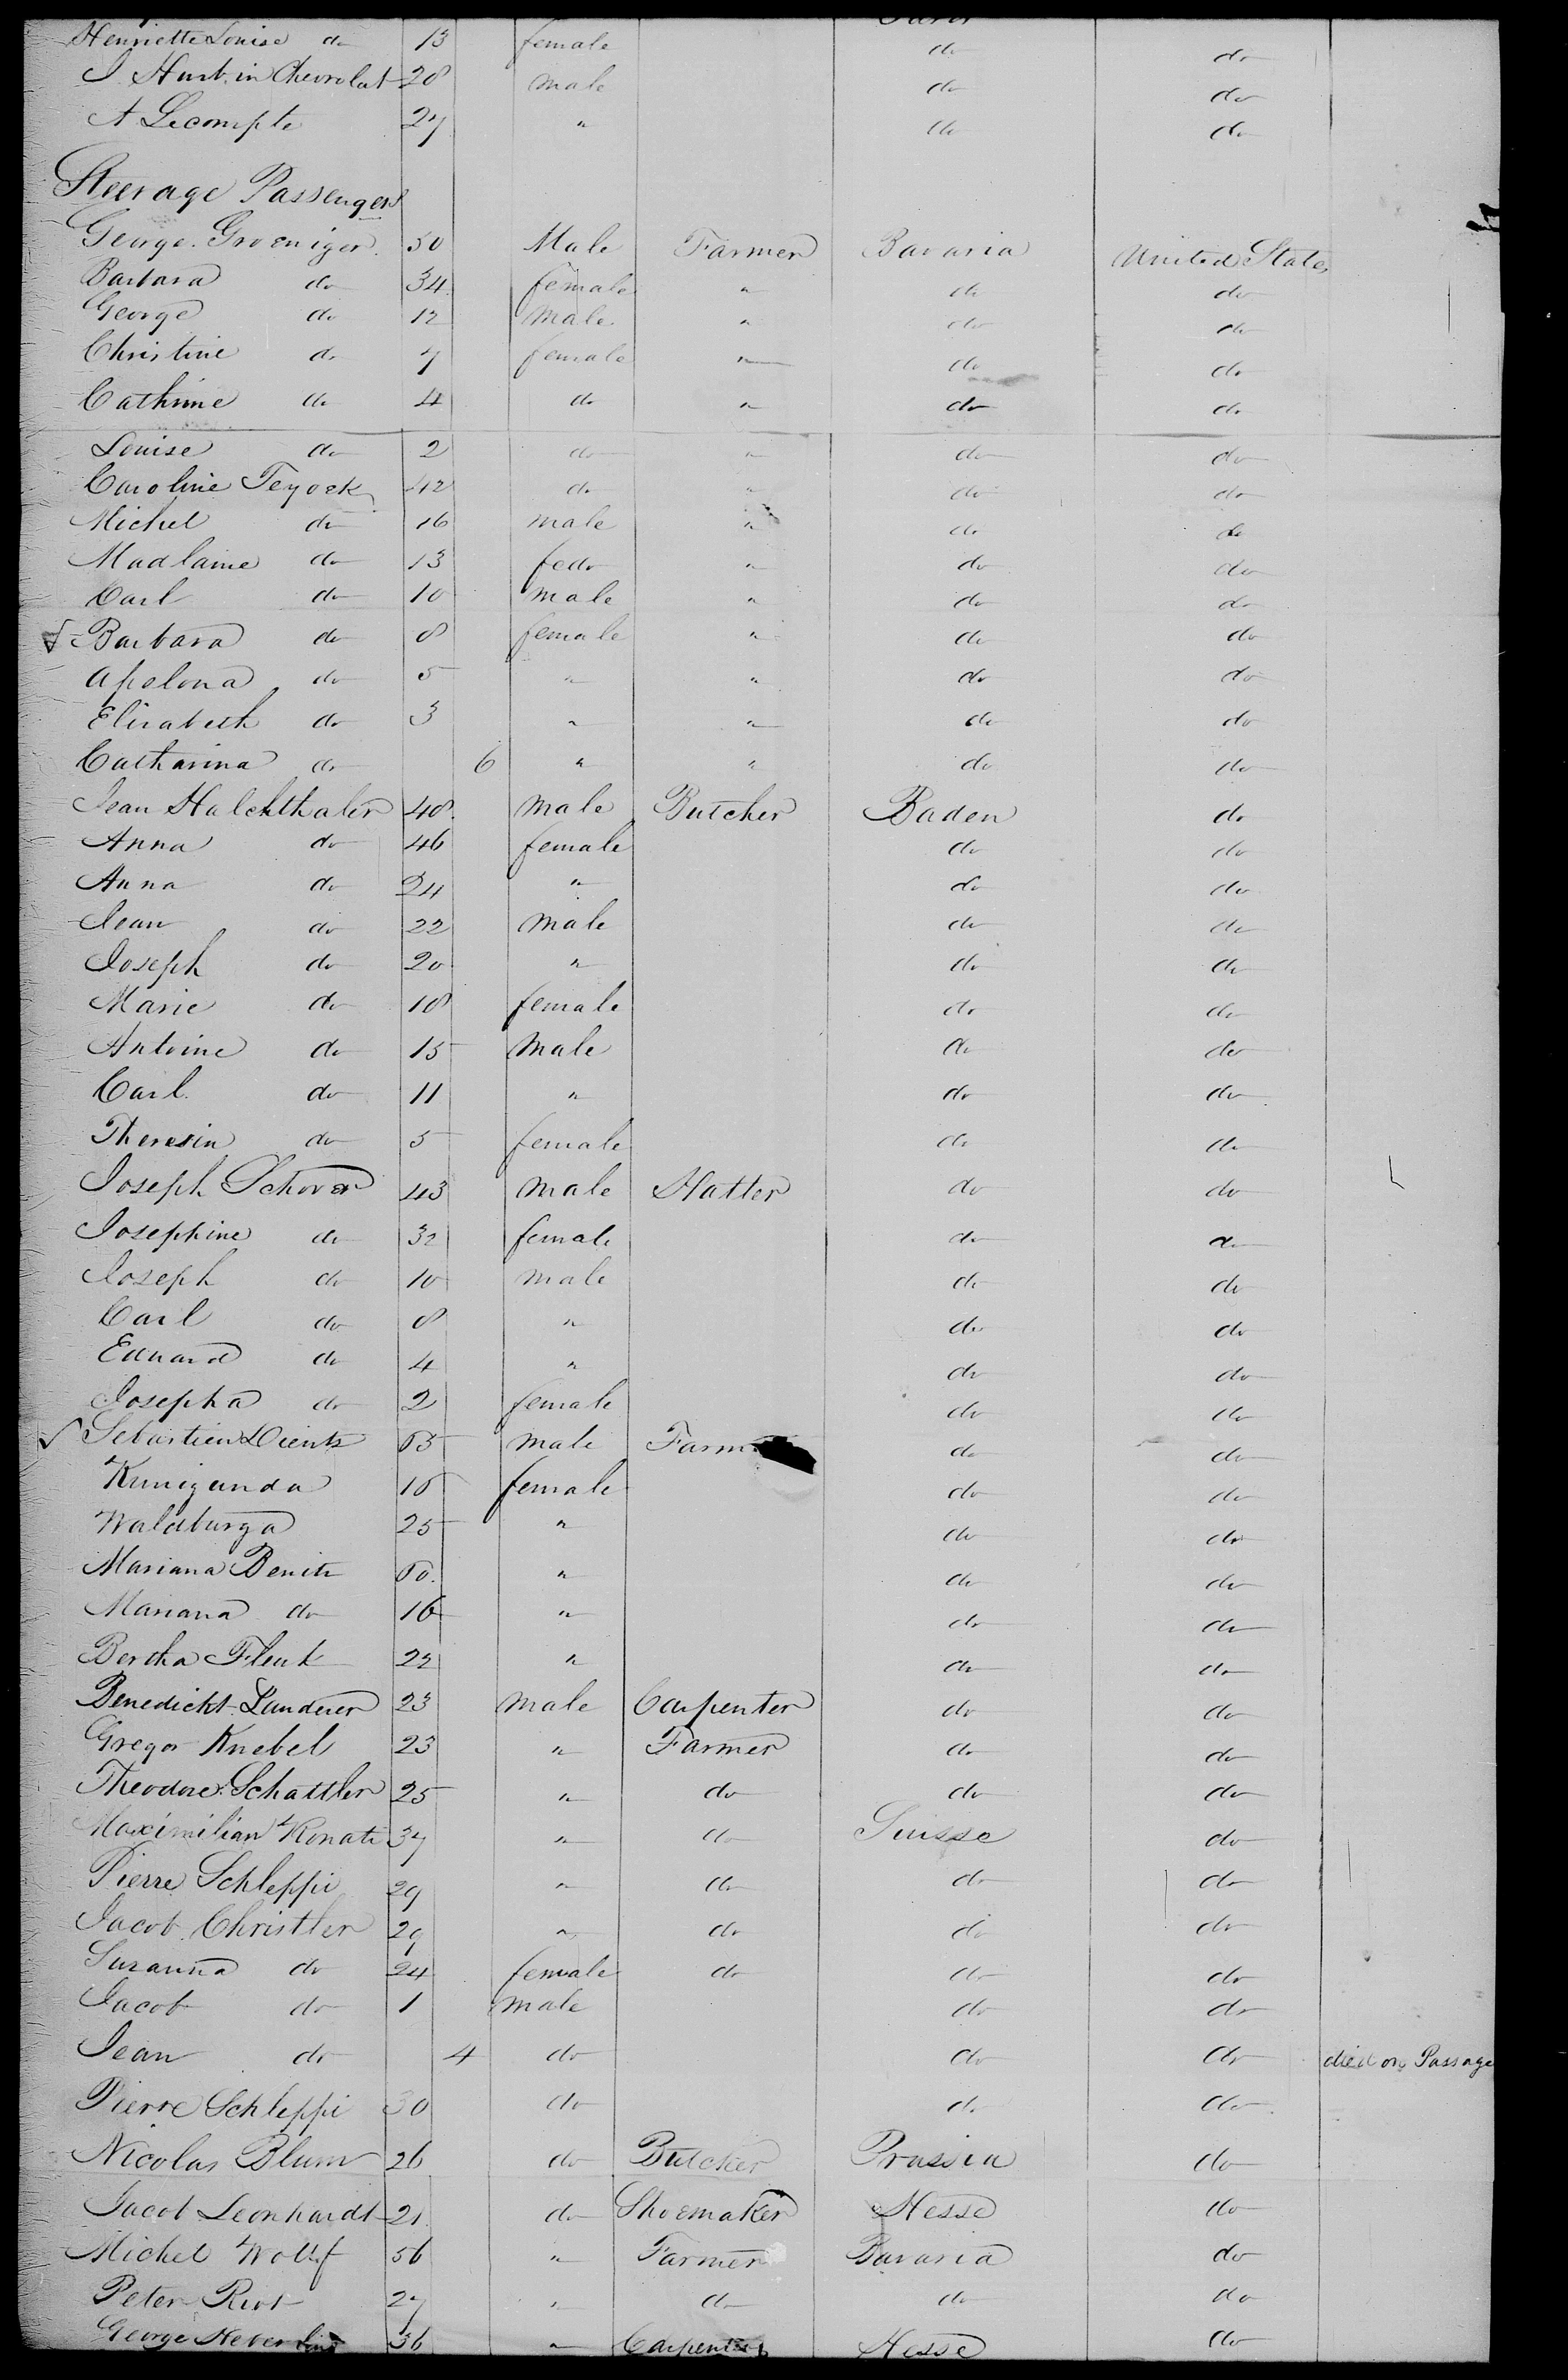 Henriette Louise do 13 female do do
28 male do do
A Lecompte 27 " do do
Steerage Passengers
George Groeniger 30 Male Farmer Bavaria United States
Barbara do 34 female " do do
George do 12 male " do do
Christine do 7 female " do do
Cathrine do 4 do " do do
Louise do 2 do " do do
Caroline Teyock 42 do " do do
Michel do 16 male " do do
Madlaine do 13 fedo " do do
Carl do 10 male " do do
Barbara do 8 female " do do
Apelona do 5 " " do do
Elizabeth do 3 " " do do
Catharina do 6 " " do do
Jean Halckthaler 48 male Butcher Baden do
Anna do 46 female do do
Anna do 24 " do do
Jean do 22 male do do
Joseph do 20 " do do
Marie do 18 female do do
Antoine do 15 Male do do
Carl do 11 " do do
Theresia do 5 female do do
Joseph Schover 43 male Hatter do do
Josephine do 32 female do do
Joseph do 10 male do do
Carl do 8 " do do
Eduard do 4 " do do
Josepha do 2 female do do
Sebastien Dientz male do do
Kunigunda female do do
Waldburga 25 " do do
Mariana Benitz " do do
Mariana do 16 " do do
Bertha 22 " do do
Benedickt Landerer 23 male Carpenter do do
Gregor Knebel 23 " Farmer do do
Theodore Schattler 25 " do do do
Maximilian Konati 37 " do Suisse do
Pierre Schleppi 29 " do do do
Jacob Christler 29 " do do do
Suzanna do 24 female do do do
Jacob do 1 male do do
Jean do 4 do do do died on Passage
Pierre Schleppi 30 do do do
Nicolas Blum 26 do Butcher Prussia do
Jacob Leonhardt 21 do Shoemaker Hesse do
Michel Wolff 56 " Farmer Bavaria do
Peter 27 " do do do
George 36 " Carpenter Hesse do